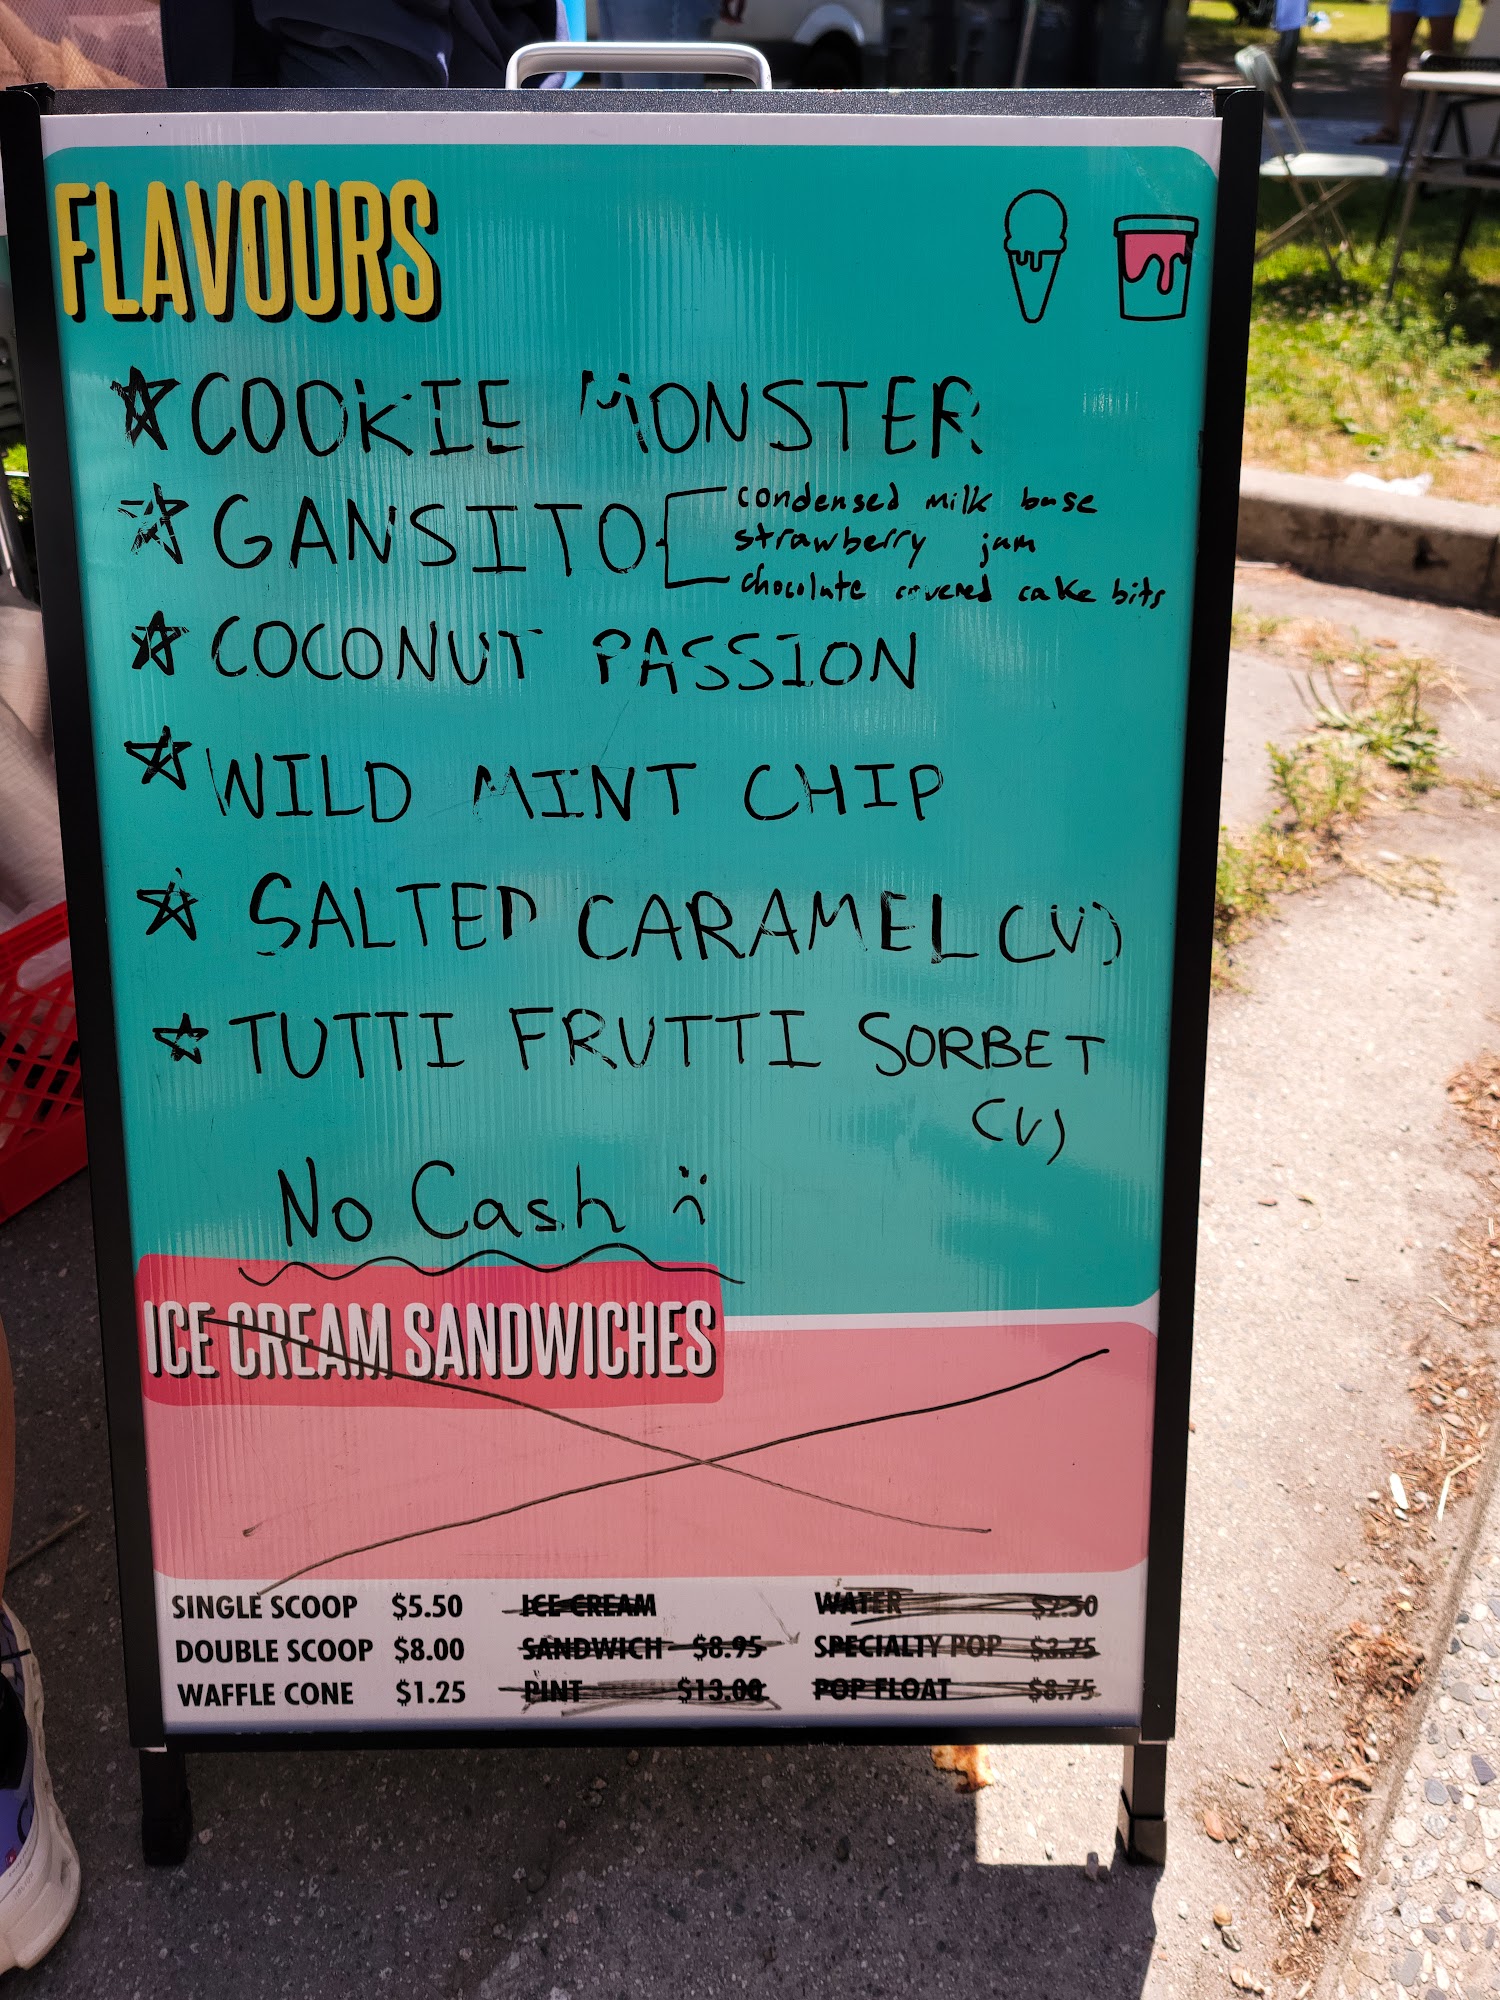 FLAVOURS
COOKIE MONSTER
GANSITO
condensed milk base
strawberry jam
chocolate covered cake bits
COCONUT PASSION
WILD MINT CHIP
SALTED CARAMEL (V)
TUTTI FRUTTI SORBET
(V)
No Cash :(
ICE CREAM SANDWICHES
SINGLE SCOOP $5.50
DOUBLE SCOOP $8.00
WAFFLE CONE $1.25
ICE CREAM
SANDWICH $8.95
PINT $13.00
WATER $2.50
SPECIALTY POP $3.75
POP FLOAT $8.75